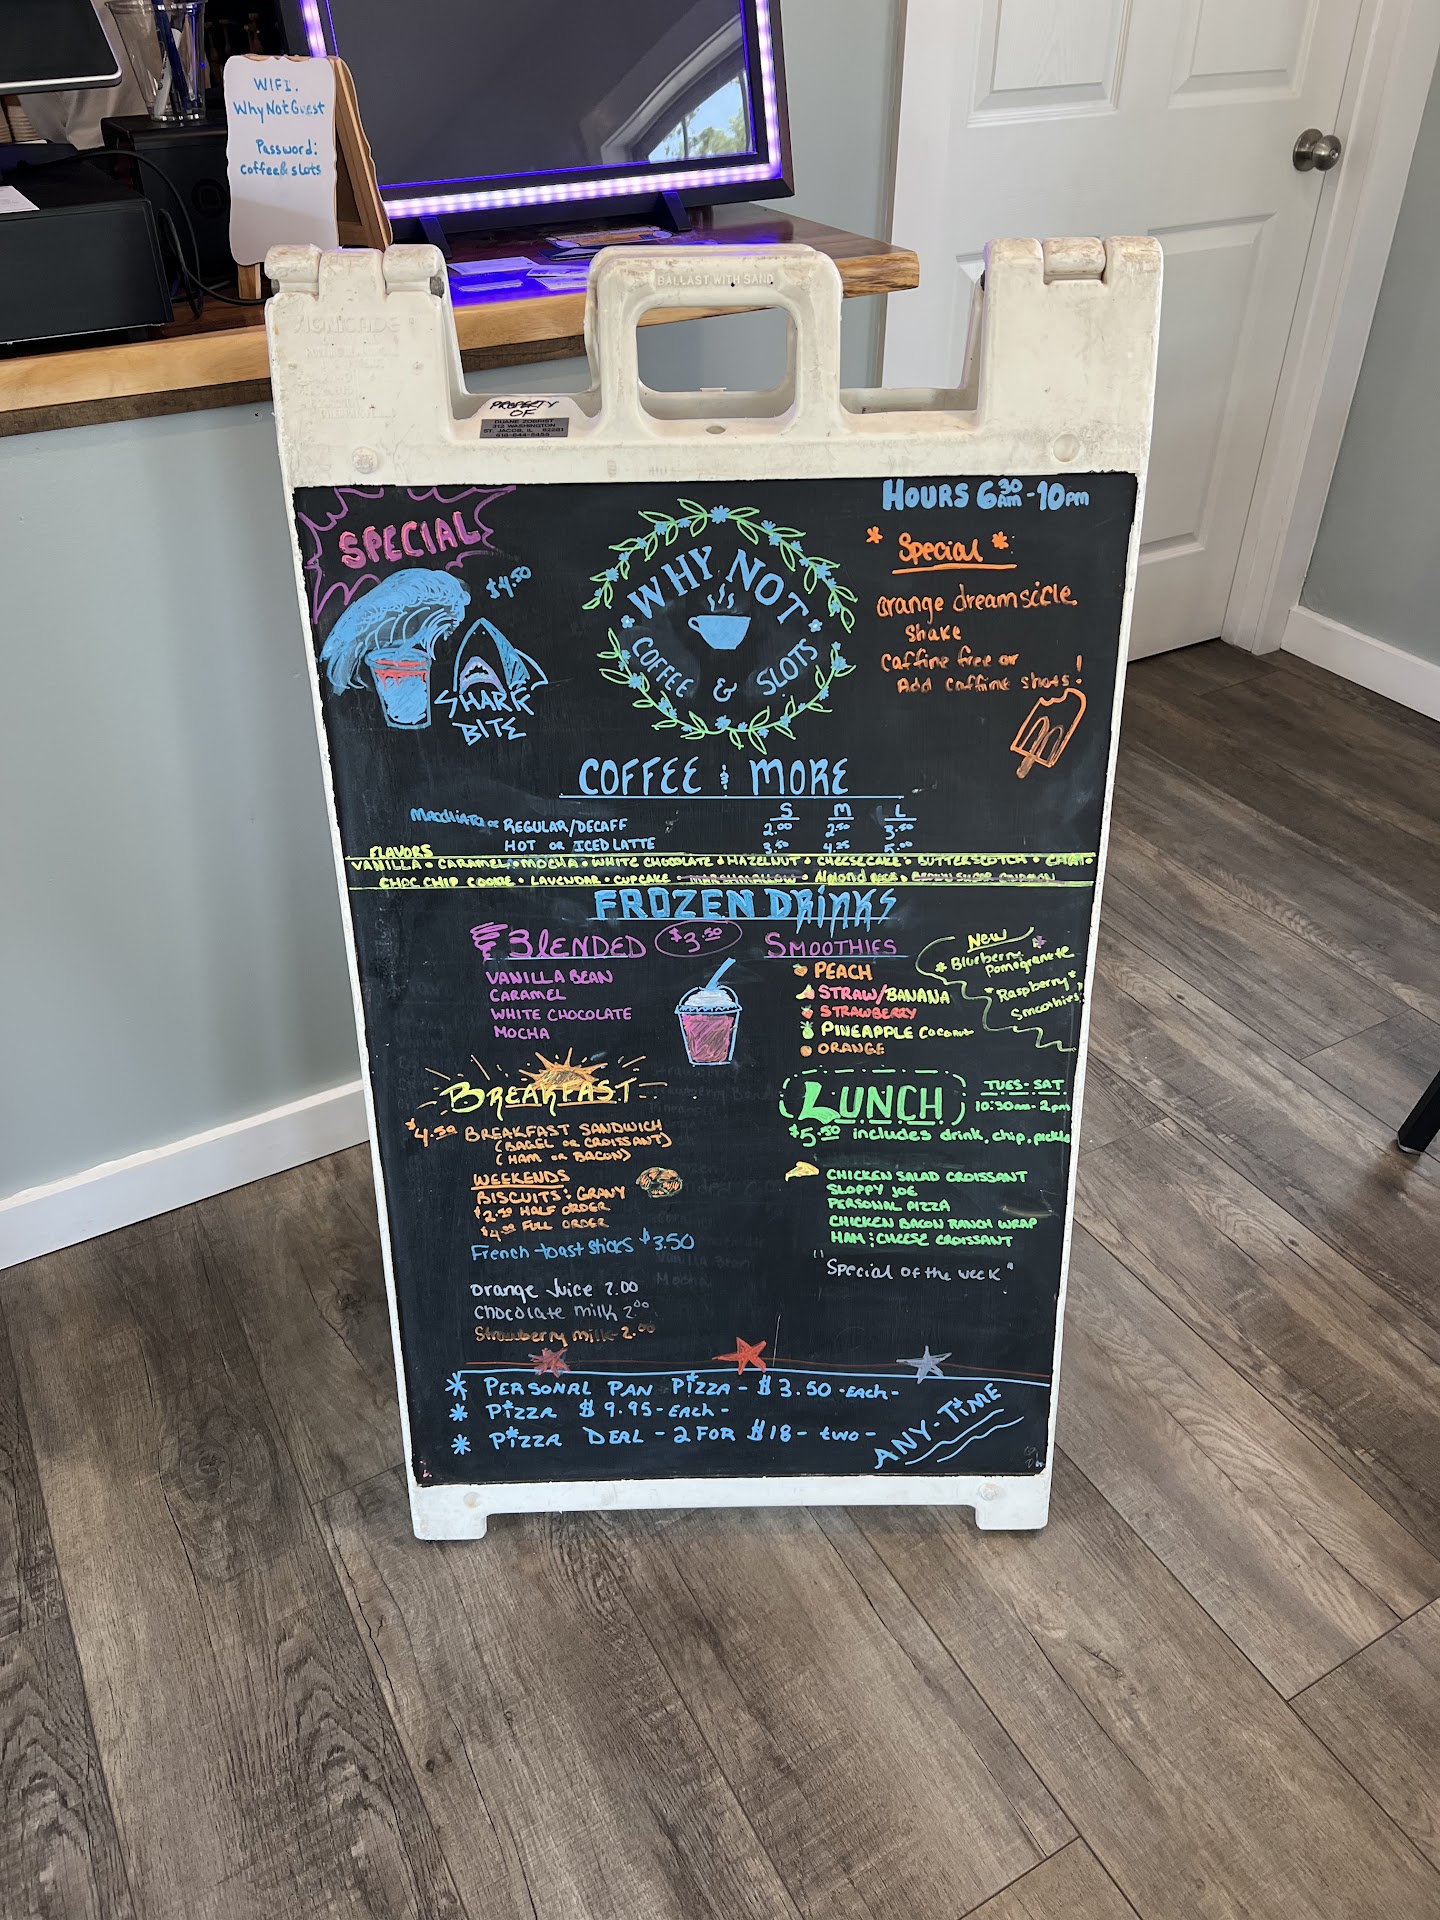 WIFI.
WhyNotGuest
Password:
coffee&slots
BALLAST WITH SAND
SIGNICADE
PROPERTY
OF
DUANE ZOBRIST
312 WASHINGTON
ST. JACOB, IL 62281
618-644-5455
SPECIAL
$4.50
SHARK
BITE
WHY NOT
COFFEE & SLOTS
HOURS 6 30 AM - 10 PM
* Special *
orange dreamsicle
Shake
Caffine free or
Add caffine shots!
COFFEE & MORE
S M L
Macchiato or REGULAR/DECAFF 2.00 2.50 3.50
HOT OR ICED LATTE 3.50 4.25 5.00
FLAVORS
VANILLA • CARAMEL • MOCHA • WHITE CHOCOLATE • HAZELNUT • CHEESECAKE • BUTTERSCOTCH • CHAI •
CHOC CHIP COOKIE • LAVENDAR • CUPCAKE • MARSHMALLOW • Almond • BROWN SUGAR CINNAMON
FROZEN DRINKS
BLENDED $3.50
VANILLA BEAN
CARAMEL
WHITE CHOCOLATE
MOCHA
SMOOTHIES
PEACH
STRAW/BANANA
STRAWBERRY
PINEAPPLE Coconut
ORANGE
New
* Blueberry *
Pomegranete
* Raspberry *
Smoothies!
BREAKFAST
$4.50 BREAKFAST SANDWICH
(BAGEL OR CROISSANT)
(HAM OR BACON)
WEEKENDS
BISCUITS & GRAVY
$2.50 HALF ORDER
$4.00 FULL ORDER
French toast sticks $3.50
Orange Juice 2.00
Chocolate milk 2.00
Strawberry milk 2.00
LUNCH
TUES-SAT
10:30am-2pm
$5.50 includes drink, chip, pickle
CHICKEN SALAD CROISSANT
SLOPPY JOE
PERSONAL PIZZA
CHICKEN BACON RANCH WRAP
HAM & CHEESE CROISSANT
"Special of the week"
* PERSONAL PAN PIZZA - $3.50 -EACH-
* PIZZA $9.95 -EACH-
* PIZZA DEAL - 2 FOR $18 - two -
ANY-TIME